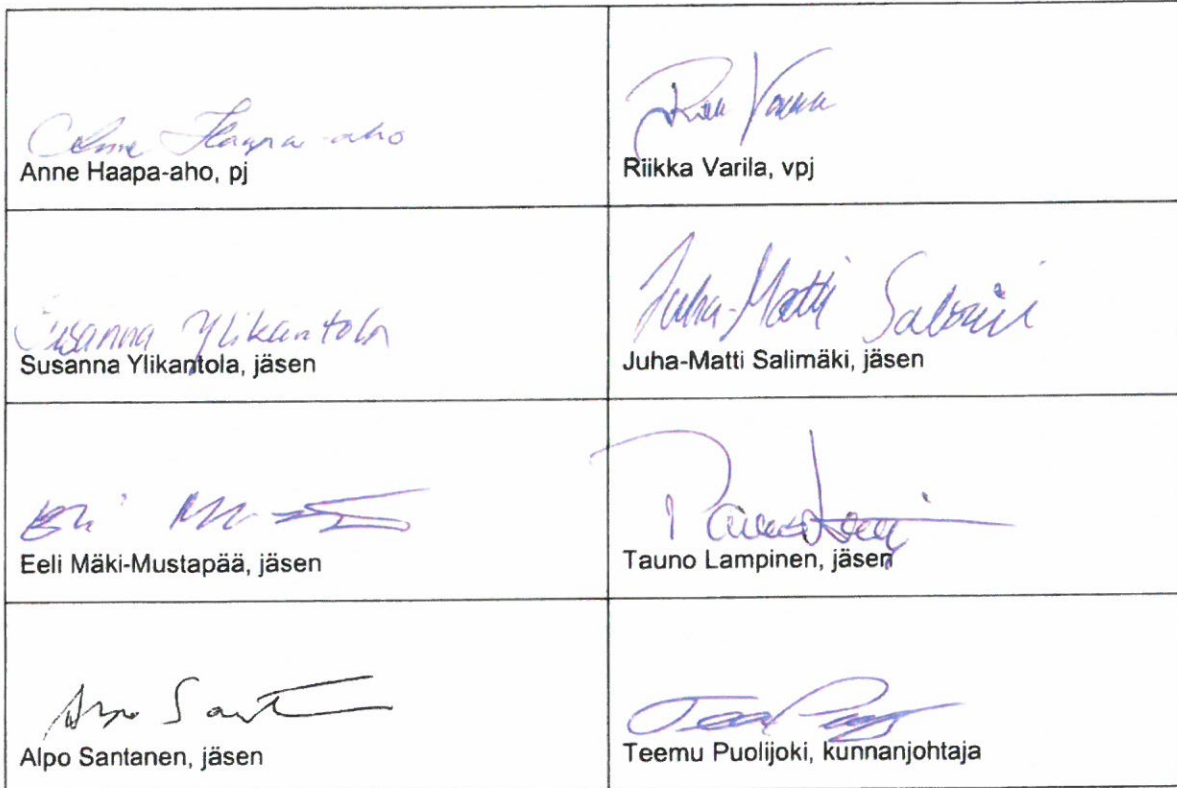 Anne Haapa-aho
Anne Haapa-aho, pj
Riikka Varila, vpj
Susanna Ylikantola
Susanna Ylikantola, jäsen
Juha-Matti
Juha-Matti Salimäki, jäsen
Eeli Mäki-Mustapää, jäsen
Tauno Lampinen, jäsen
Alpo
Alpo Santanen, jäsen
Teemu Puolijoki, kunnanjohtaja